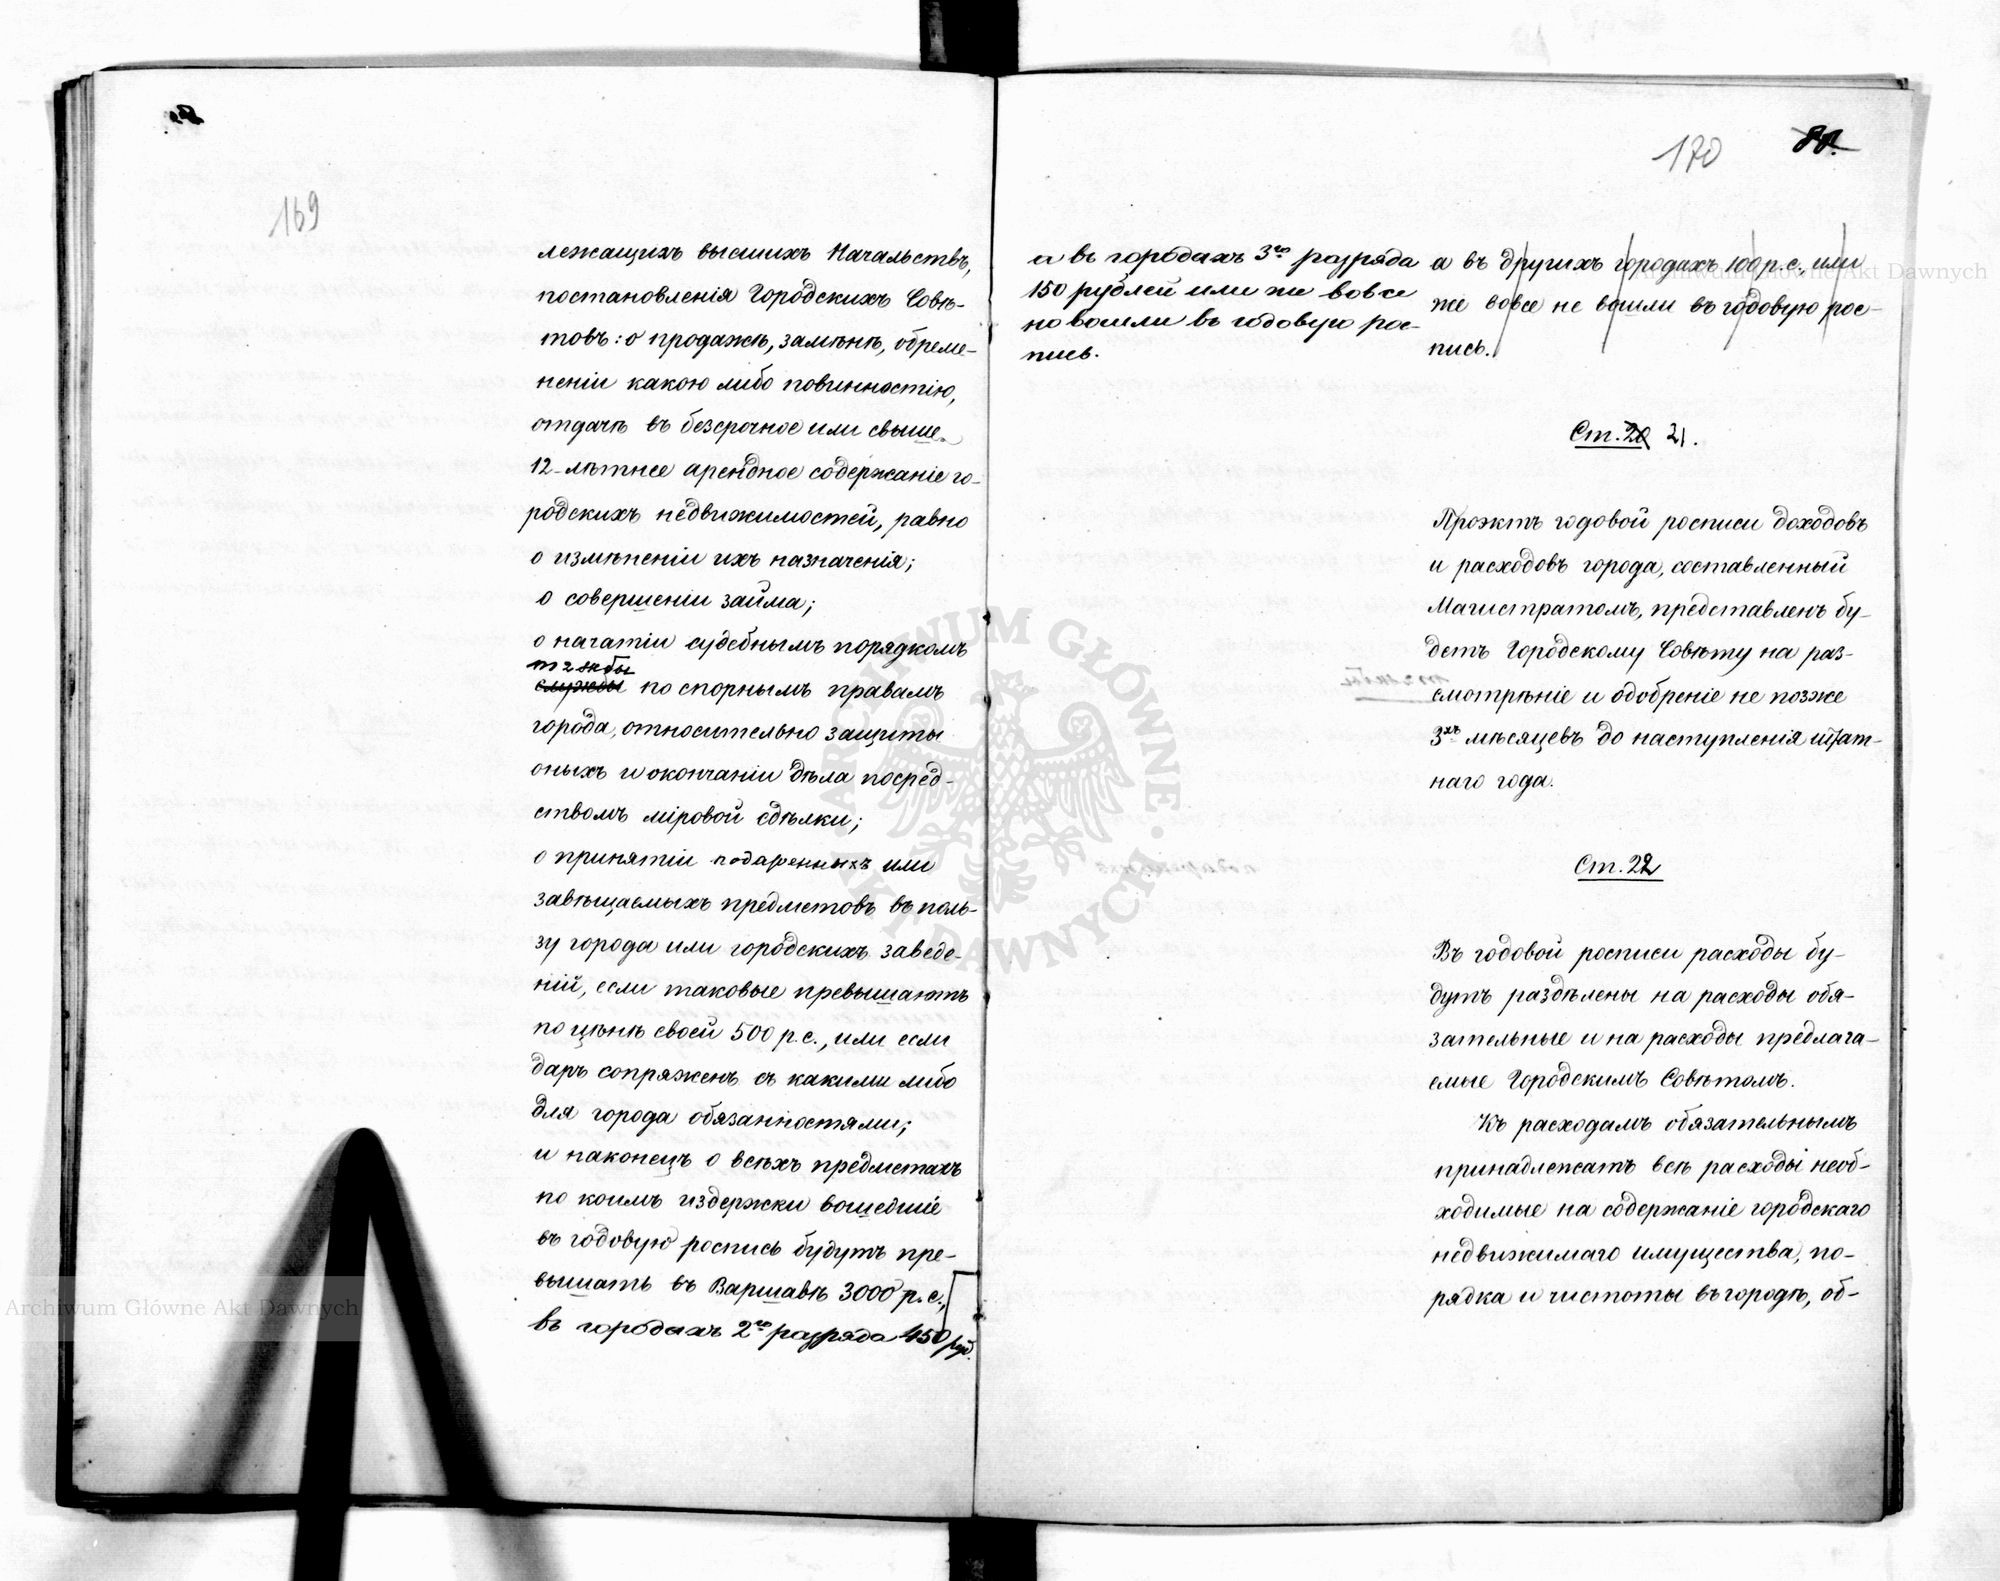 169
лежащихъ высшихъ Начальствъ,
постановленія Городскихъ Совѣ-
товъ: о продажѣ, замѣнѣ, обреме-
неніи какою либо повинностію,
отдачѣ въ безсрочное или свыше
12-лѣтнее арендное содержаніе го-
родскихъ недвижимостей, равно
о измѣненіи ихъ назначенія;
о совершеніи займа;
о начатіи судебнымъ порядкомъ
тяжбы
службы по спорнымъ правамъ
города, относительно защиты
оныхъ и окончаніи дѣла посред-
ствомъ міровой сдѣлки;
о принятіи подаренныхъ или
завѣщаемыхъ предметовъ въ поль-
зу города или городскихъ заведе-
ній, если таковые превышаютъ
по цѣнѣ своей 500 р.с., или если
даръ сопряженъ съ какими либо
для города обязанностями;
и наконецъ о всѣхъ предметахъ
по коимъ издержки вошедшіе
въ годовую роспись будутъ пре-
вышать въ Варшавѣ 3000 р.с.,
въ городахъ 2го разряда 450 руб.
170
а въ городахъ 3го разряда
150 рублей или же вовсе
не вошли въ годовую рос-
пись.
а въ другихъ городахъ 100 р.с., или
же вовсе не вошли въ годовую рос-
пись.
Ст. 20 21.
Проэктъ годовой росписи доходовъ
и расходовъ города, составленный
Магистратомъ, представленъ бу-
детъ Городскому Совѣту на раз-
смотрѣніе и одобреніе не позже
3хъ мѣсяцевъ до наступленія штат-
наго года.
Ст. 22
Въ годовой росписи расходы бу-
дутъ раздѣлены на расходы обя-
зательные и на расходы предлага-
емые Городскимъ Совѣтомъ.
Къ расходамъ обязательнымъ
принадлежатъ всѣ расходы необ-
ходимые на содержаніе городскаго
недвижимаго имущества, по-
рядка и чистоты въ городѣ, об-
ARCHIWUM GŁÓWNE AKT DAWNYCH
Archiwum Główne Akt Dawnych
Archiwum Główne Akt Dawnych